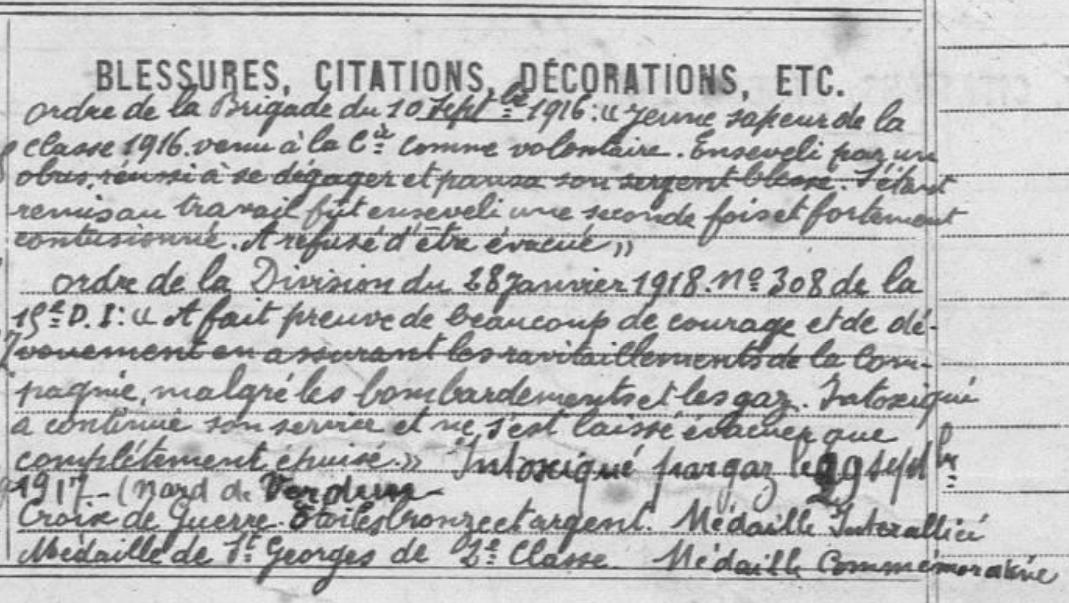 BLESSURES, CITATIONS, DÉCORATIONS, ETC.
ordre de la Brigade du 10 Sept.bre 1916: « Jeune sapeur de la
classe 1916. venu à la Cie comme volontaire. Enseveli par un
obus, réussi à se dégager et pansa son sergent blessé. S'étant
remis au travail fût enseveli une seconde fois et fortement
contusionné. A refusé d'être évacué »
ordre de la Division du 28 Janvier 1918. No 308 de la
15e D.I: « A fait preuve de beaucoup de courage et de dé-
vouement en assurant les ravitaillements de la Com-
pagnie, malgré les bombardements et les gaz. Intoxiqué
a continué son service et ne s'est laissé évacuer que
complétement épuisé. » Intoxiqué par gaz le 29 septbr
1917 - (Nord de Verdun -
Croix de Guerre. Etoiles bronze et argent. Médaille Interalliée
Médaille de St Georges de 2e Classe. Médaille Commémorative